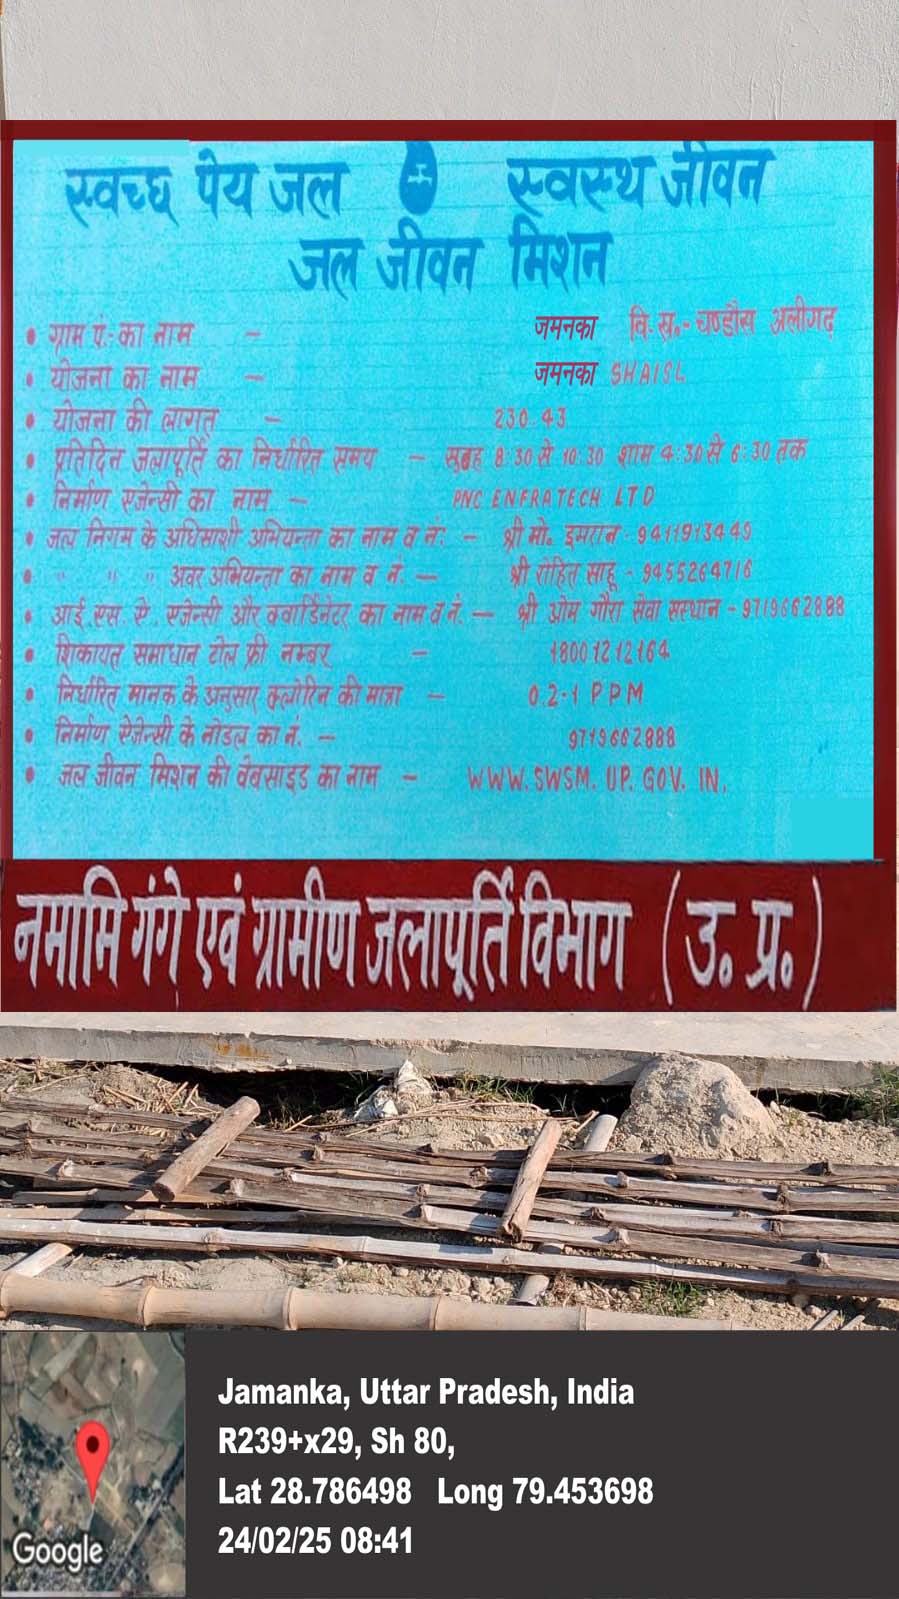 स्वच्छ पेय जल स्वस्थ जीवन
जल जीवन मिशन
• ग्राम पं:- का नाम - जमनका वि.ख.- चण्डौस अलीगढ़
• योजना का नाम - जमनका SHAISL
• योजना की लागत - 230.43
• प्रतिदिन जलापूर्ति का निर्धारित समय - सुबह 8:30 से 10:30 शाम 4:30 से 6:30 तक
• निर्माण एजेन्सी का नाम - PNC ENFRATECH LTD
• जल निगम के अधिसाशी अभियन्ता का नाम व नं: - श्री मो. इमरान - 9411913449
• " " " अवर अभियन्ता का नाम व नं. - श्री रोहित साहू - 9455264716
• आई.एस.ऐ. एजेन्सी और क्वार्डिनेटर का नाम व नं. - श्री ओम गौरा सेवा सस्थान - 9719662888
• शिकायत समाधान टोल फ्री नम्बर - 18001212164
• निर्धारित मानक के अनुसार क्लोरिन की मात्रा - 0.2-1 PPM
• निर्माण ऐजेन्सी के नोडल का नं. - 9719662888
• जल जीवन मिशन की वेबसाइड का नाम - WWW.SWSM.UP.GOV.IN.
नमामि गंगे एवं ग्रामीण जलापूर्ति विभाग (उ.प्र.)
Jamanka, Uttar Pradesh, India
R239+x29, Sh 80,
Lat 28.786498 Long 79.453698
24/02/25 08:41
Google